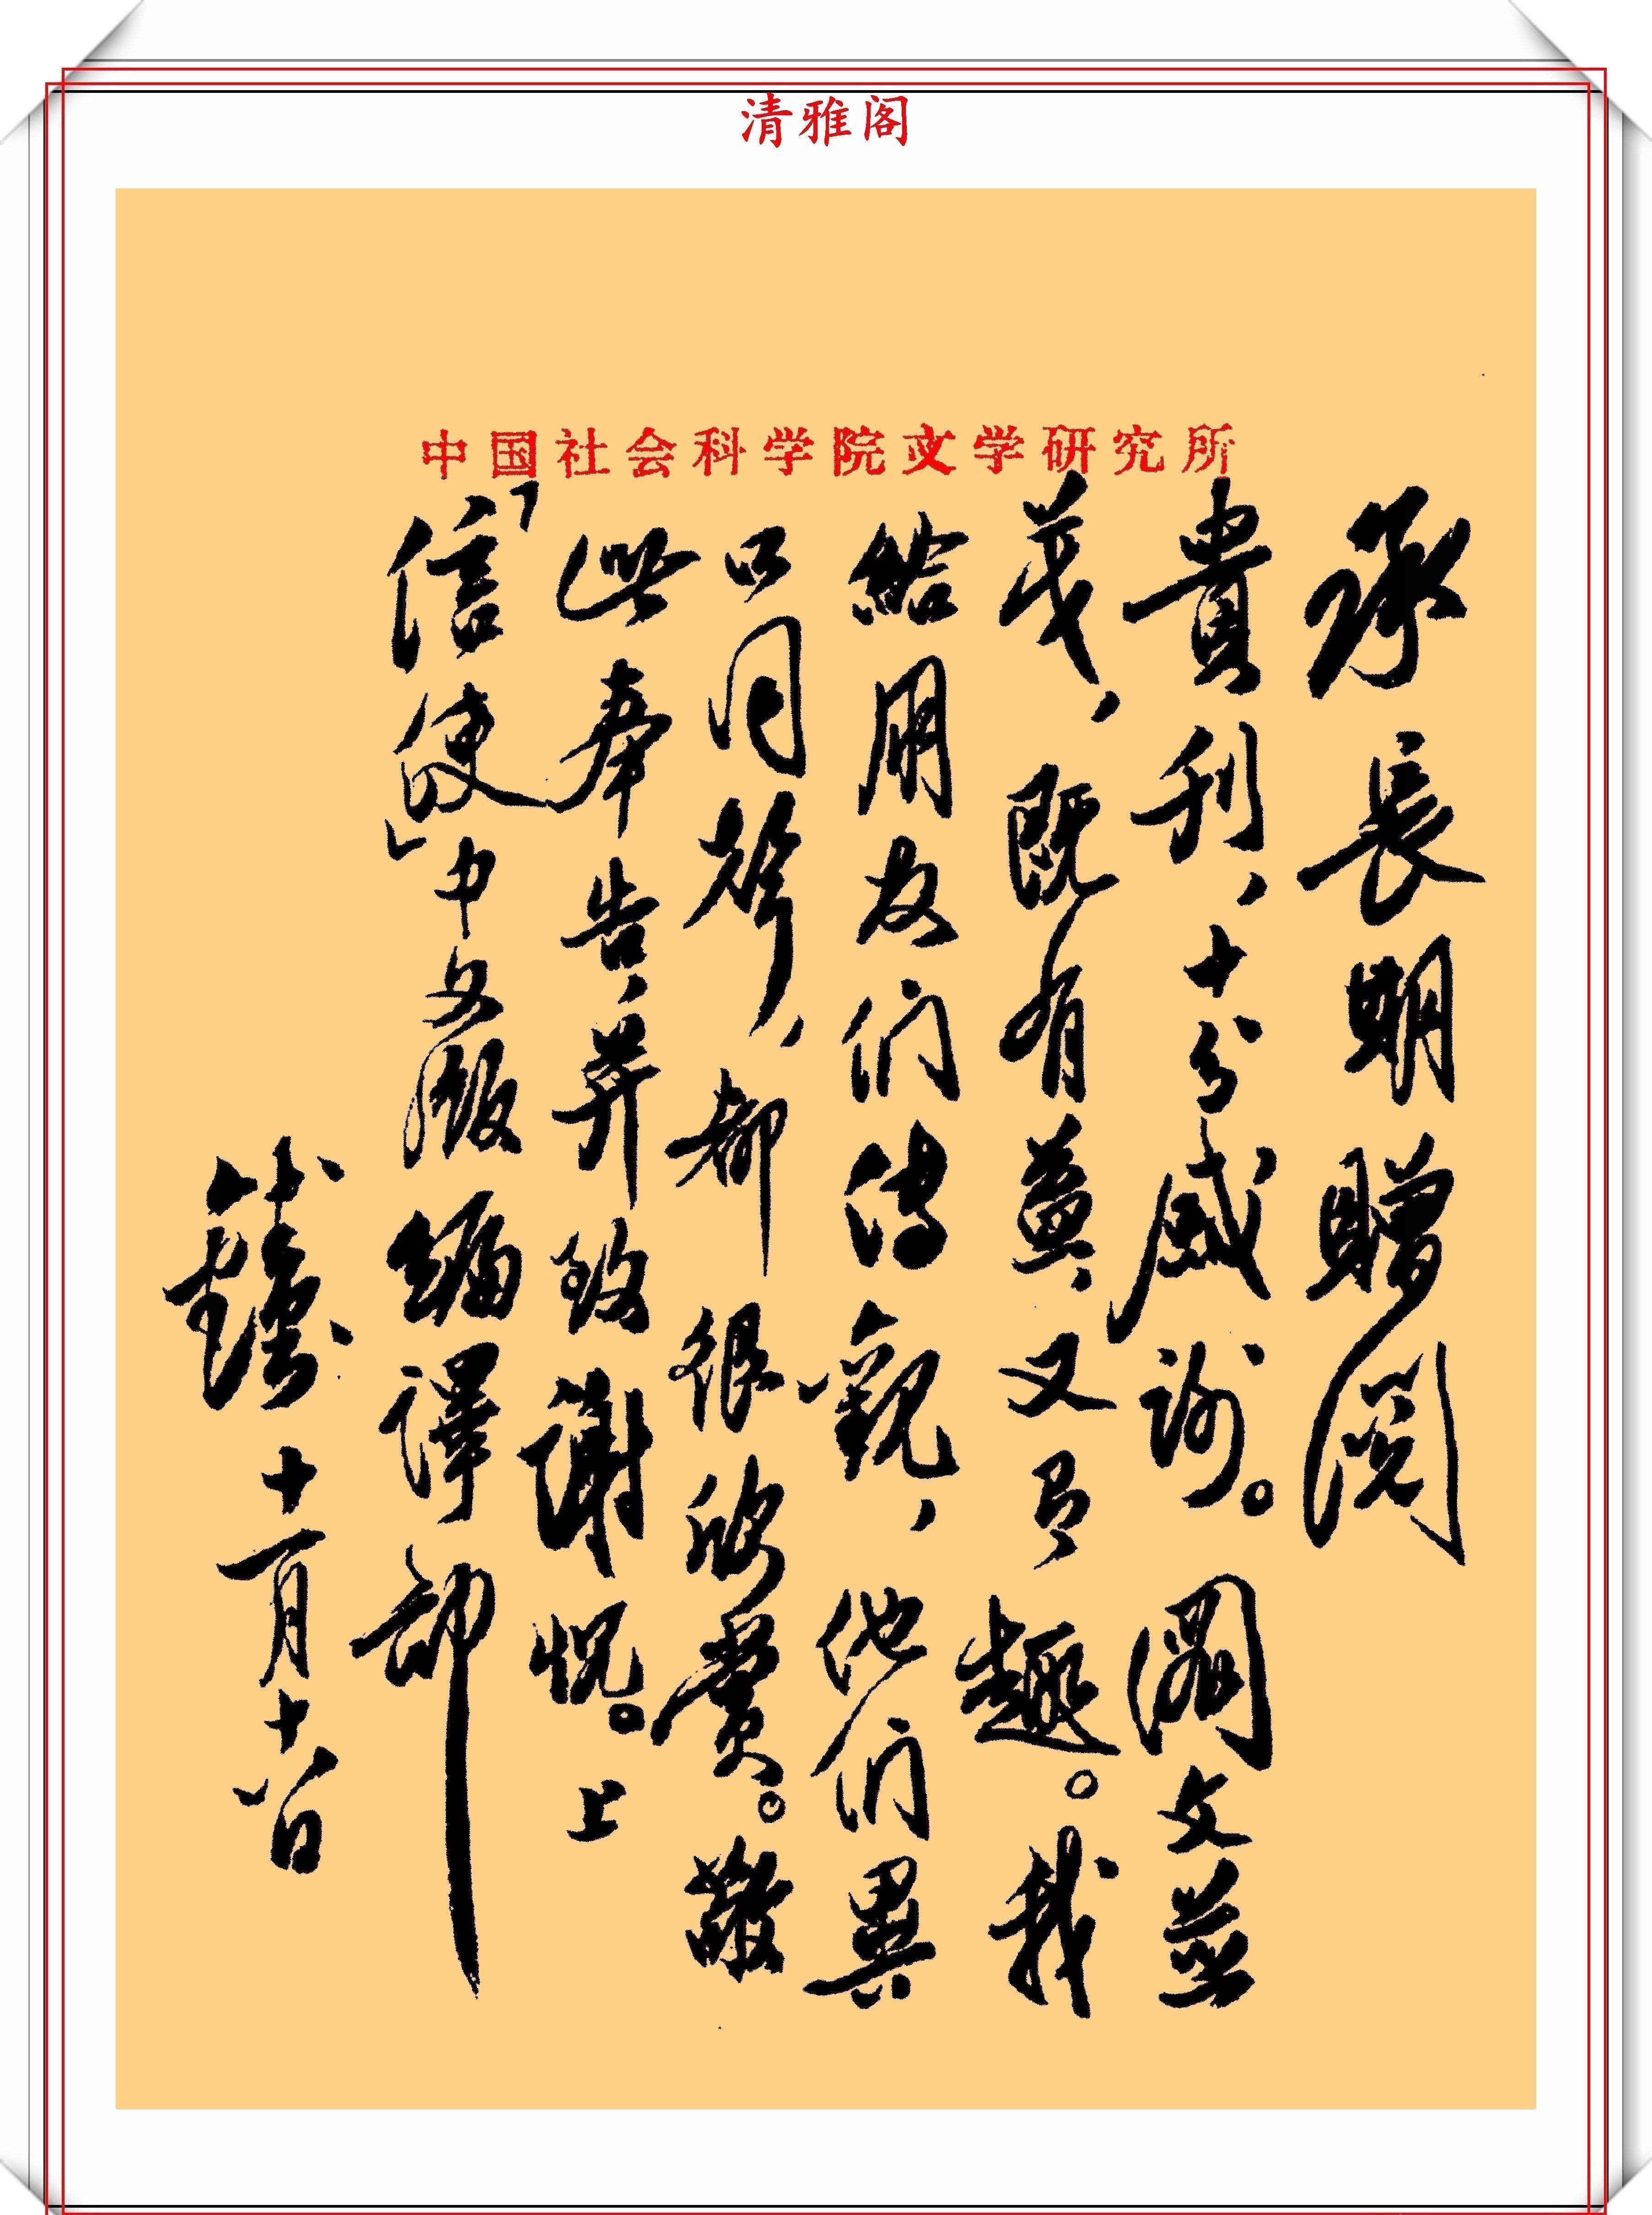 清雅阁
中国社会科学院文学研究所
承長期贈閱
貴刊，十分感謝。圖文並
茂，既有益，又有趣。我
給朋友们傳觀，他们異
口同聲，都很欣賞。敬
此奉告，并致謝忱。上
「信使」中文版編譯部
十一月十八日